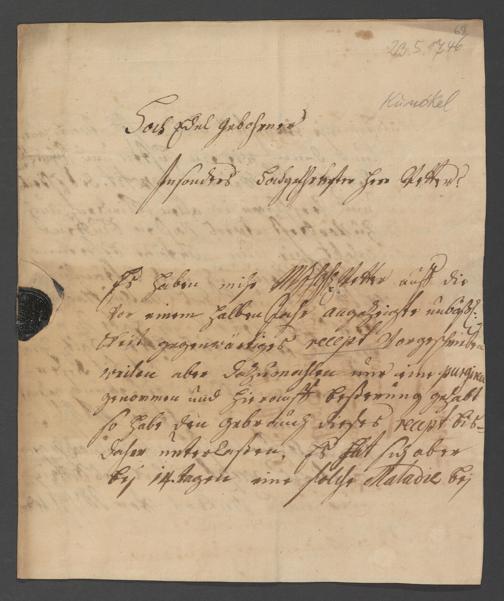 68
23.5.1746
Künckel
Hoch Edel Gebohrner
Insonders Hochgeehrtester Herr Vetter!
Es haben mihr Vetter auff die
vor einem halben Jahr angezeigte unbäß:
gegenwärtiges recept vorgeschrieben
weilen aber dazumahlen nur eine purgan
genommen und hierauff beßerung gehabt
so habe den gebrauch dieses recept bis-
daher unterlaßen, Es hat sich aber
bej 14. tagen eine solche Maladie bej